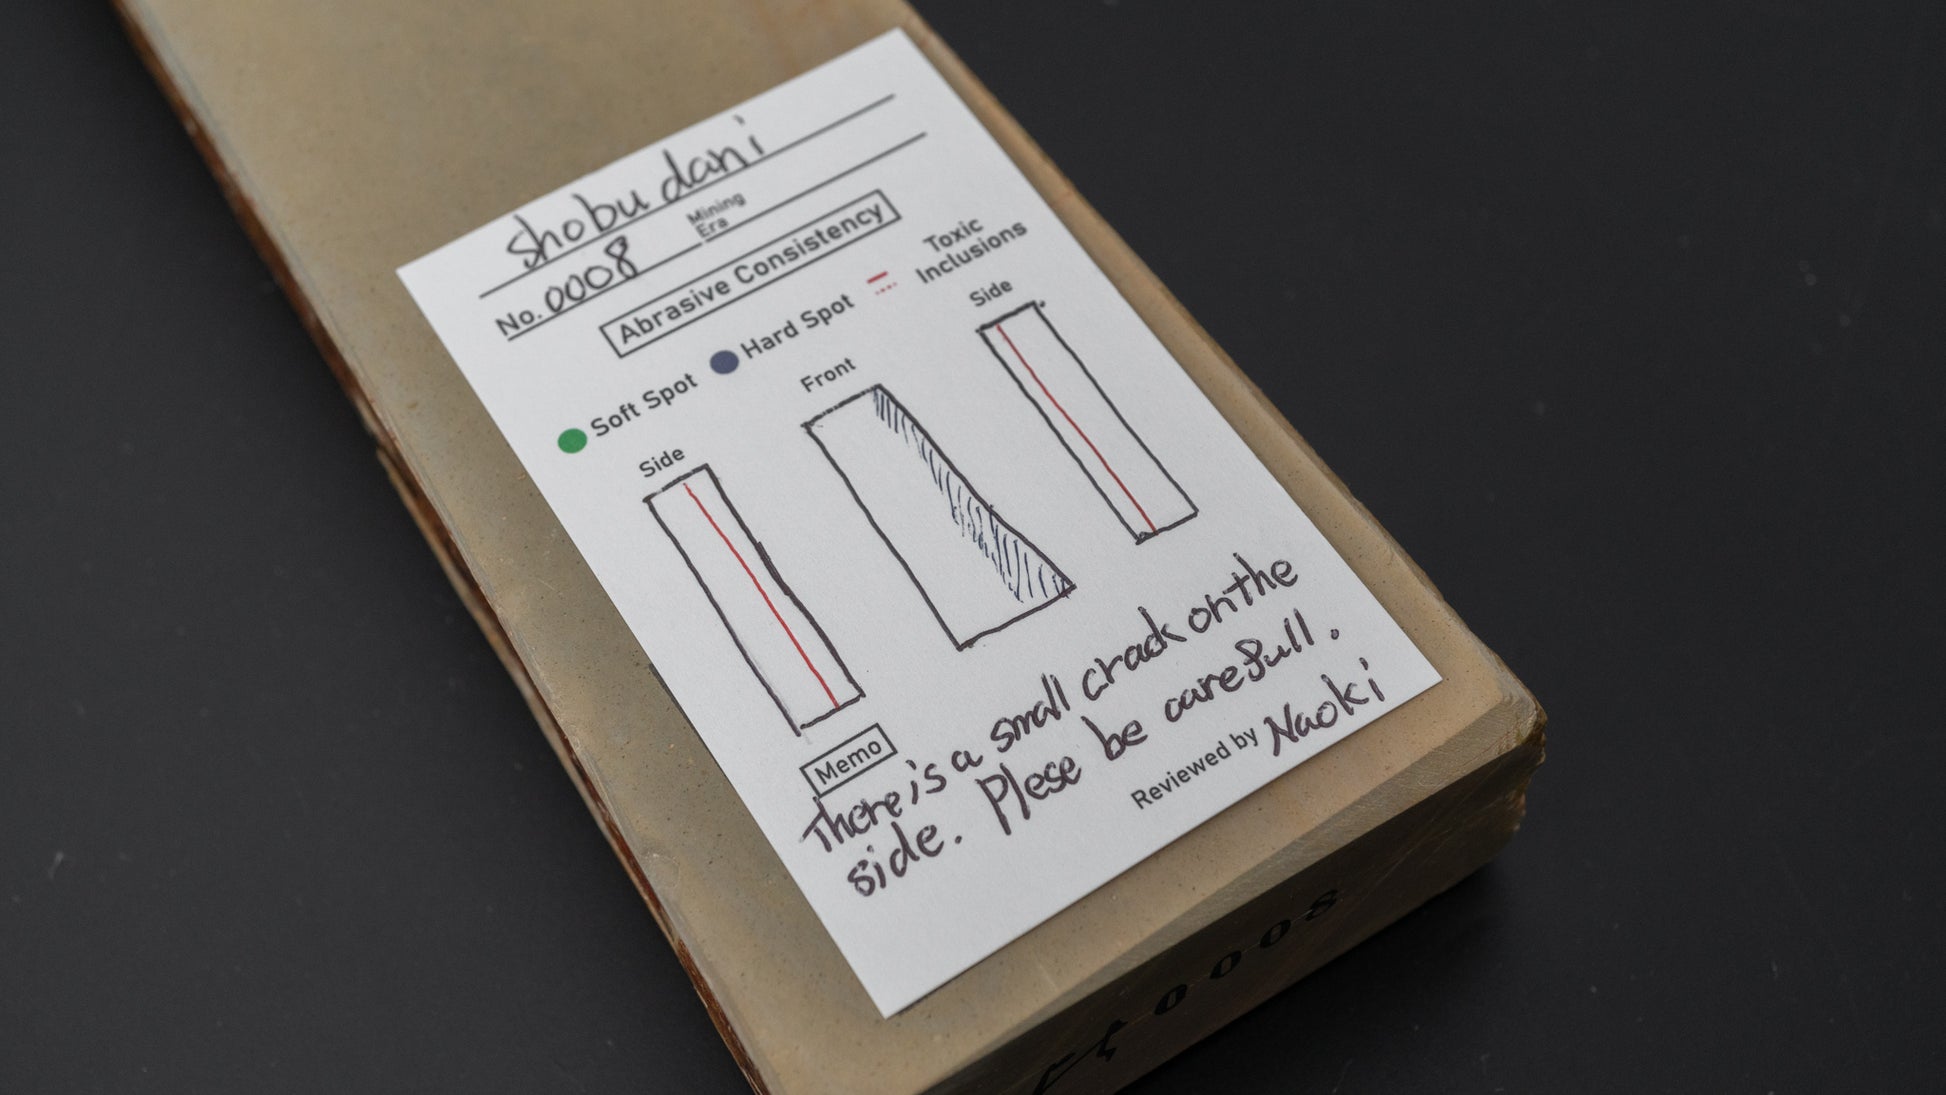 Shobudani
No. 0008 Mining Era
Abrasive Consistency
Soft Spot Hard Spot Toxic Inclusions
Side Front Side
Memo
There is a small crack on the
side. Plese be carefull.
Reviewed by Naoki
0008